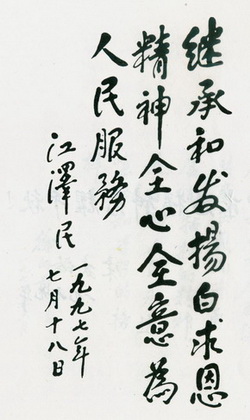 继承和发揚白求恩
精神全心全意為
人民服務
江澤民
一九九七年
七月十八日